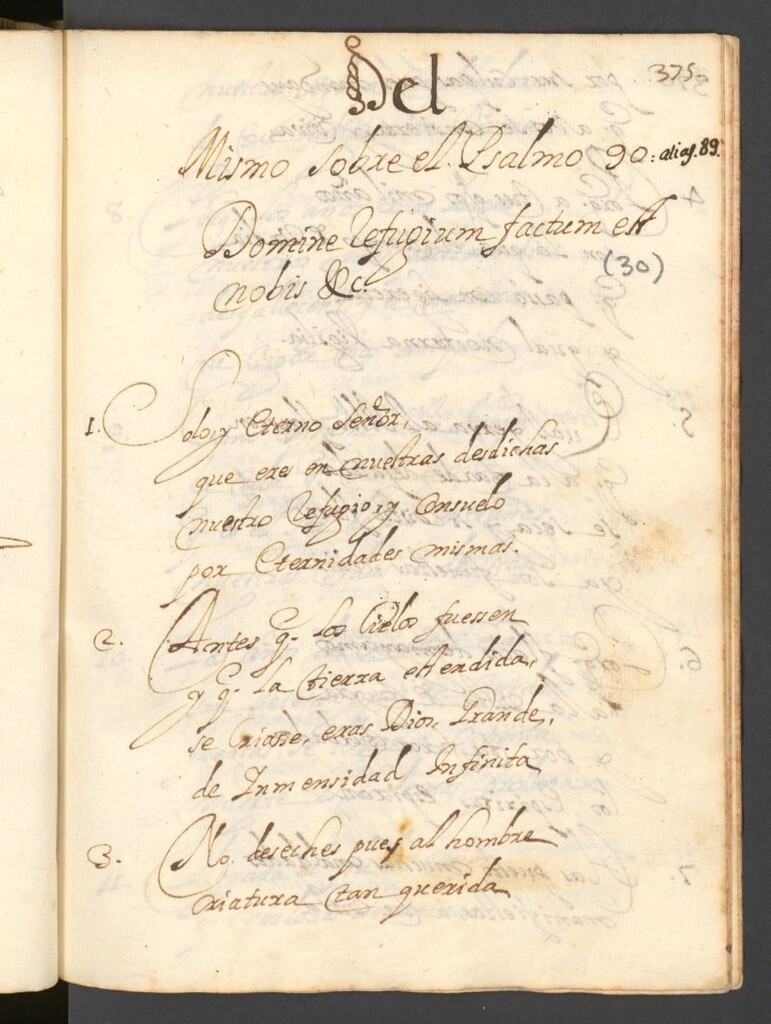 375.
Del
Mismo sobre el Psalmo 90: alias. 89.
Domine refugium factum est
nobis &c.
(30)
1. Solo, y Eterno Señor,
que eres en nuestras desdichas
nuestro refugio, y Consuelo
por Eternidades mismas.
2. Antes q. los Cielos fuessen
y q. la tierra estendida,
se Criasse, eras Dios, Grande,
de Inmensidad Infinita
3. No, deseches pues al hombre
criatura tan querida